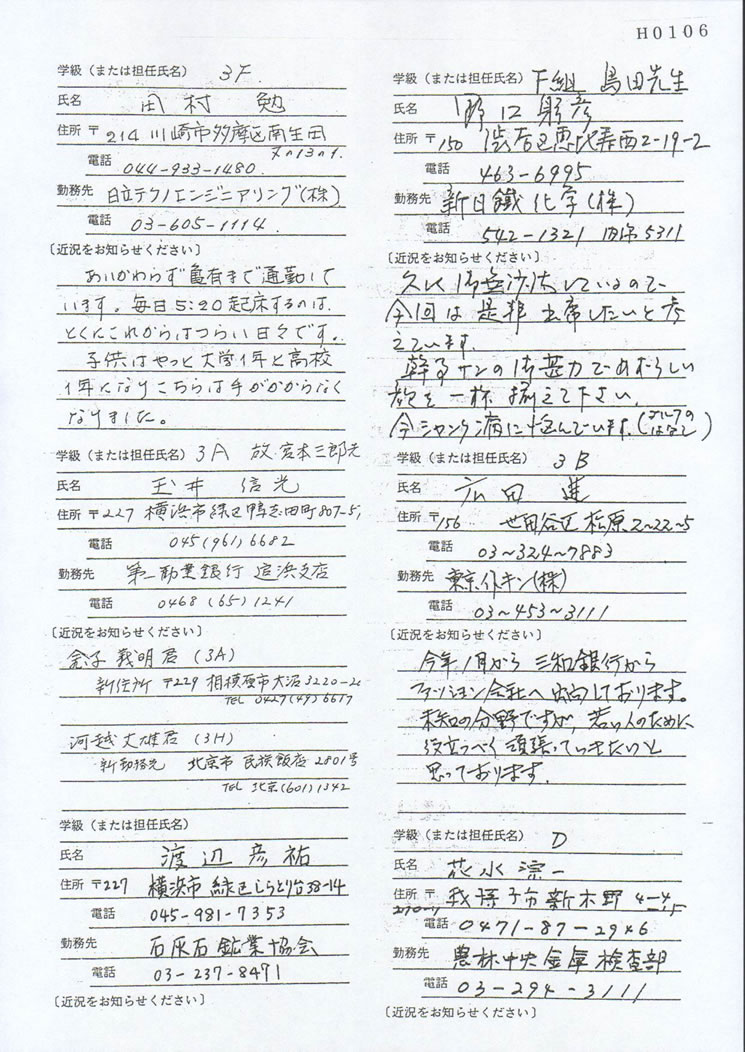 H0106
学級（または担任氏名） 3F.
氏名 田村 勉
住所 〒214 川崎市多摩区南生田
7ノ13ノ1.
電話 044-933-1480.
勤務先 日立テクノエンジニアリング(株)
電話 03-605-1114.
〔近況をお知らせください〕
あいかわらず亀有まで通勤して
います。毎日5:20起床するのは、
とくにこれからはつらい日々です。
子供はやっと大学1年と高校
1年になりこちらは手がかからなく
なりました。
学級（または担任氏名） 3A 故 宮本三郎先
氏名 玉井 信光
住所 〒227 横浜市緑区鴨志田町807-5,
電話 045(961)6682
勤務先 第一勧業銀行 追浜支店
電話 0468(65)1241
〔近況をお知らせください〕
金子 義明君 (3A)
新住所 〒229 相模原市大沼3220-2
TEL 0427(49)6617
河越 丈雄君 (3H)
新勤務先 北京市 民族飯店 2801号
TEL 北京(601)1342
学級（または担任氏名）
氏名 渡辺 彦祐
住所 〒227 横浜市緑区しらとり台38-14
電話 045-981-7353
勤務先 石灰石鉱業協会
電話 03-237-8471
〔近況をお知らせください〕
学級（または担任氏名） F組 島田先生
氏名 野口 彦
住所 〒150 渋谷区恵比寿西2-19-2
電話 463-6995
勤務先 新日鐵化学(株)
電話 542-1321 内線5311
〔近況をお知らせください〕
久しく御無沙汰しているので
今回は是非出席したいと考
えています.
幹事サンの御尽力でめずらしい
顔を一杯揃えて下さい.
今シャンク病に悩んでいます.(ゴルフのはなし)
学級（または担任氏名） 3B
氏名 広田 蓮
住所 〒156 世田谷区松原2~22~5
電話 03~324~7883
勤務先 東京イトキン(株)
電話 03~453~3111
〔近況をお知らせください〕
今年1月から三和銀行から
ファッション会社へ出向しております。
未知の分野ですが、若い人のために
役立つべく頑張っていきたいと
思っております.
学級（または担任氏名） D
氏名 花水 一
住所 〒270-11 我孫子市新木野 4-4-15
電話 0471-87-2946
勤務先 農林中央金庫 検査部
電話 03-294-3111
〔近況をお知らせください〕